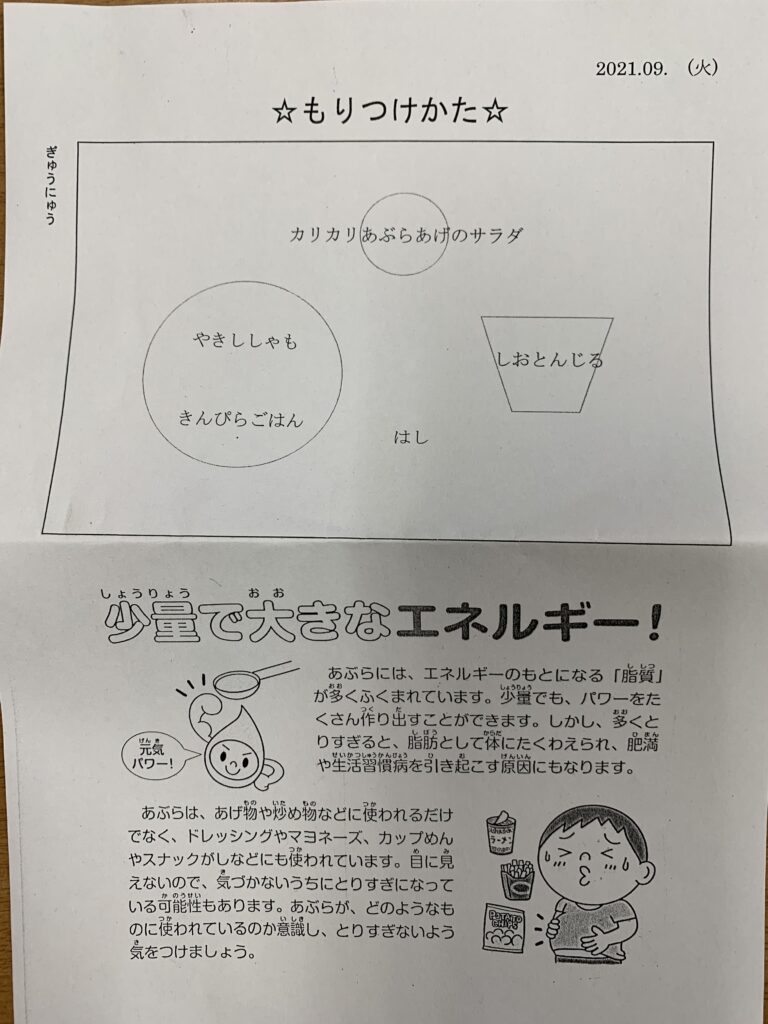 2021.09. (火)
☆もりつけかた☆
ぎゅうにゅう
カリカリあぶらあげのサラダ
やきししゃも
しおとんじる
きんぴらごはん
はし
しょうりょう おお
少量で大きなエネルギー!
あぶらには、エネルギーのもとになる「脂質」
が多くふくまれています。少量でも、パワーをた
くさん作り出すことができます。しかし、多くと
りすぎると、脂肪として体にたくわえられ、肥満
や生活習慣病を引き起こす原因にもなります。
げんき
元気
パワー!
あぶらは、あげ物や炒め物などに使われるだけ
でなく、ドレッシングやマヨネーズ、カップめん
やスナックがしなどにも使われています。目に見
えないので、気づかないうちにとりすぎになって
いる可能性もあります。あぶらが、どのようなも
のに使われているのか意識し、とりすぎないよう
気をつけましょう。
ラーメン
POTATO
CHIPS